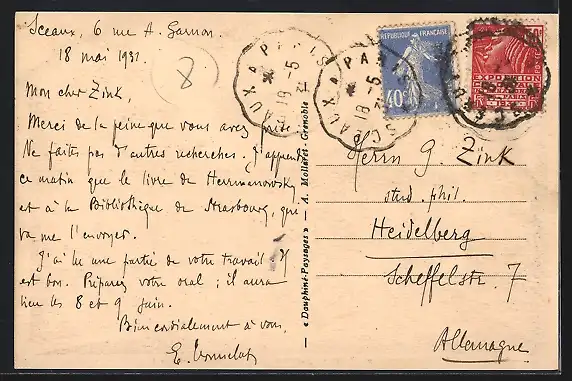 Sceaux, 6 rue A. Garnon.
18 mai 1931.
8
Mon cher Zink,
Merci de la peine que vous avez prise.
Ne faites pas d'autres recherches. J'apprends
ce matin que le livre de Herrmanowsky
est à la Bibliothèque de Strasbourg, qui
va me l'envoyer.
J'ai lu une partie de votre travail. Il
est bon. Préparez votre oral ; il aura
lieu les 8 et 9 juin.
Bien cordialement à vous,
E.
« Dauphiné-Paysages » — A. Mollaret - Grenoble
SCEAUX A PARIS
18 -5
31
SCEAUX A PARIS
18 -5
31
REPUBLIQUE FRANÇAISE
40c
EXPOSITION
Herrn G. Zink
stud. phil.
Heidelberg
Scheffelstr. 7
Allemagne